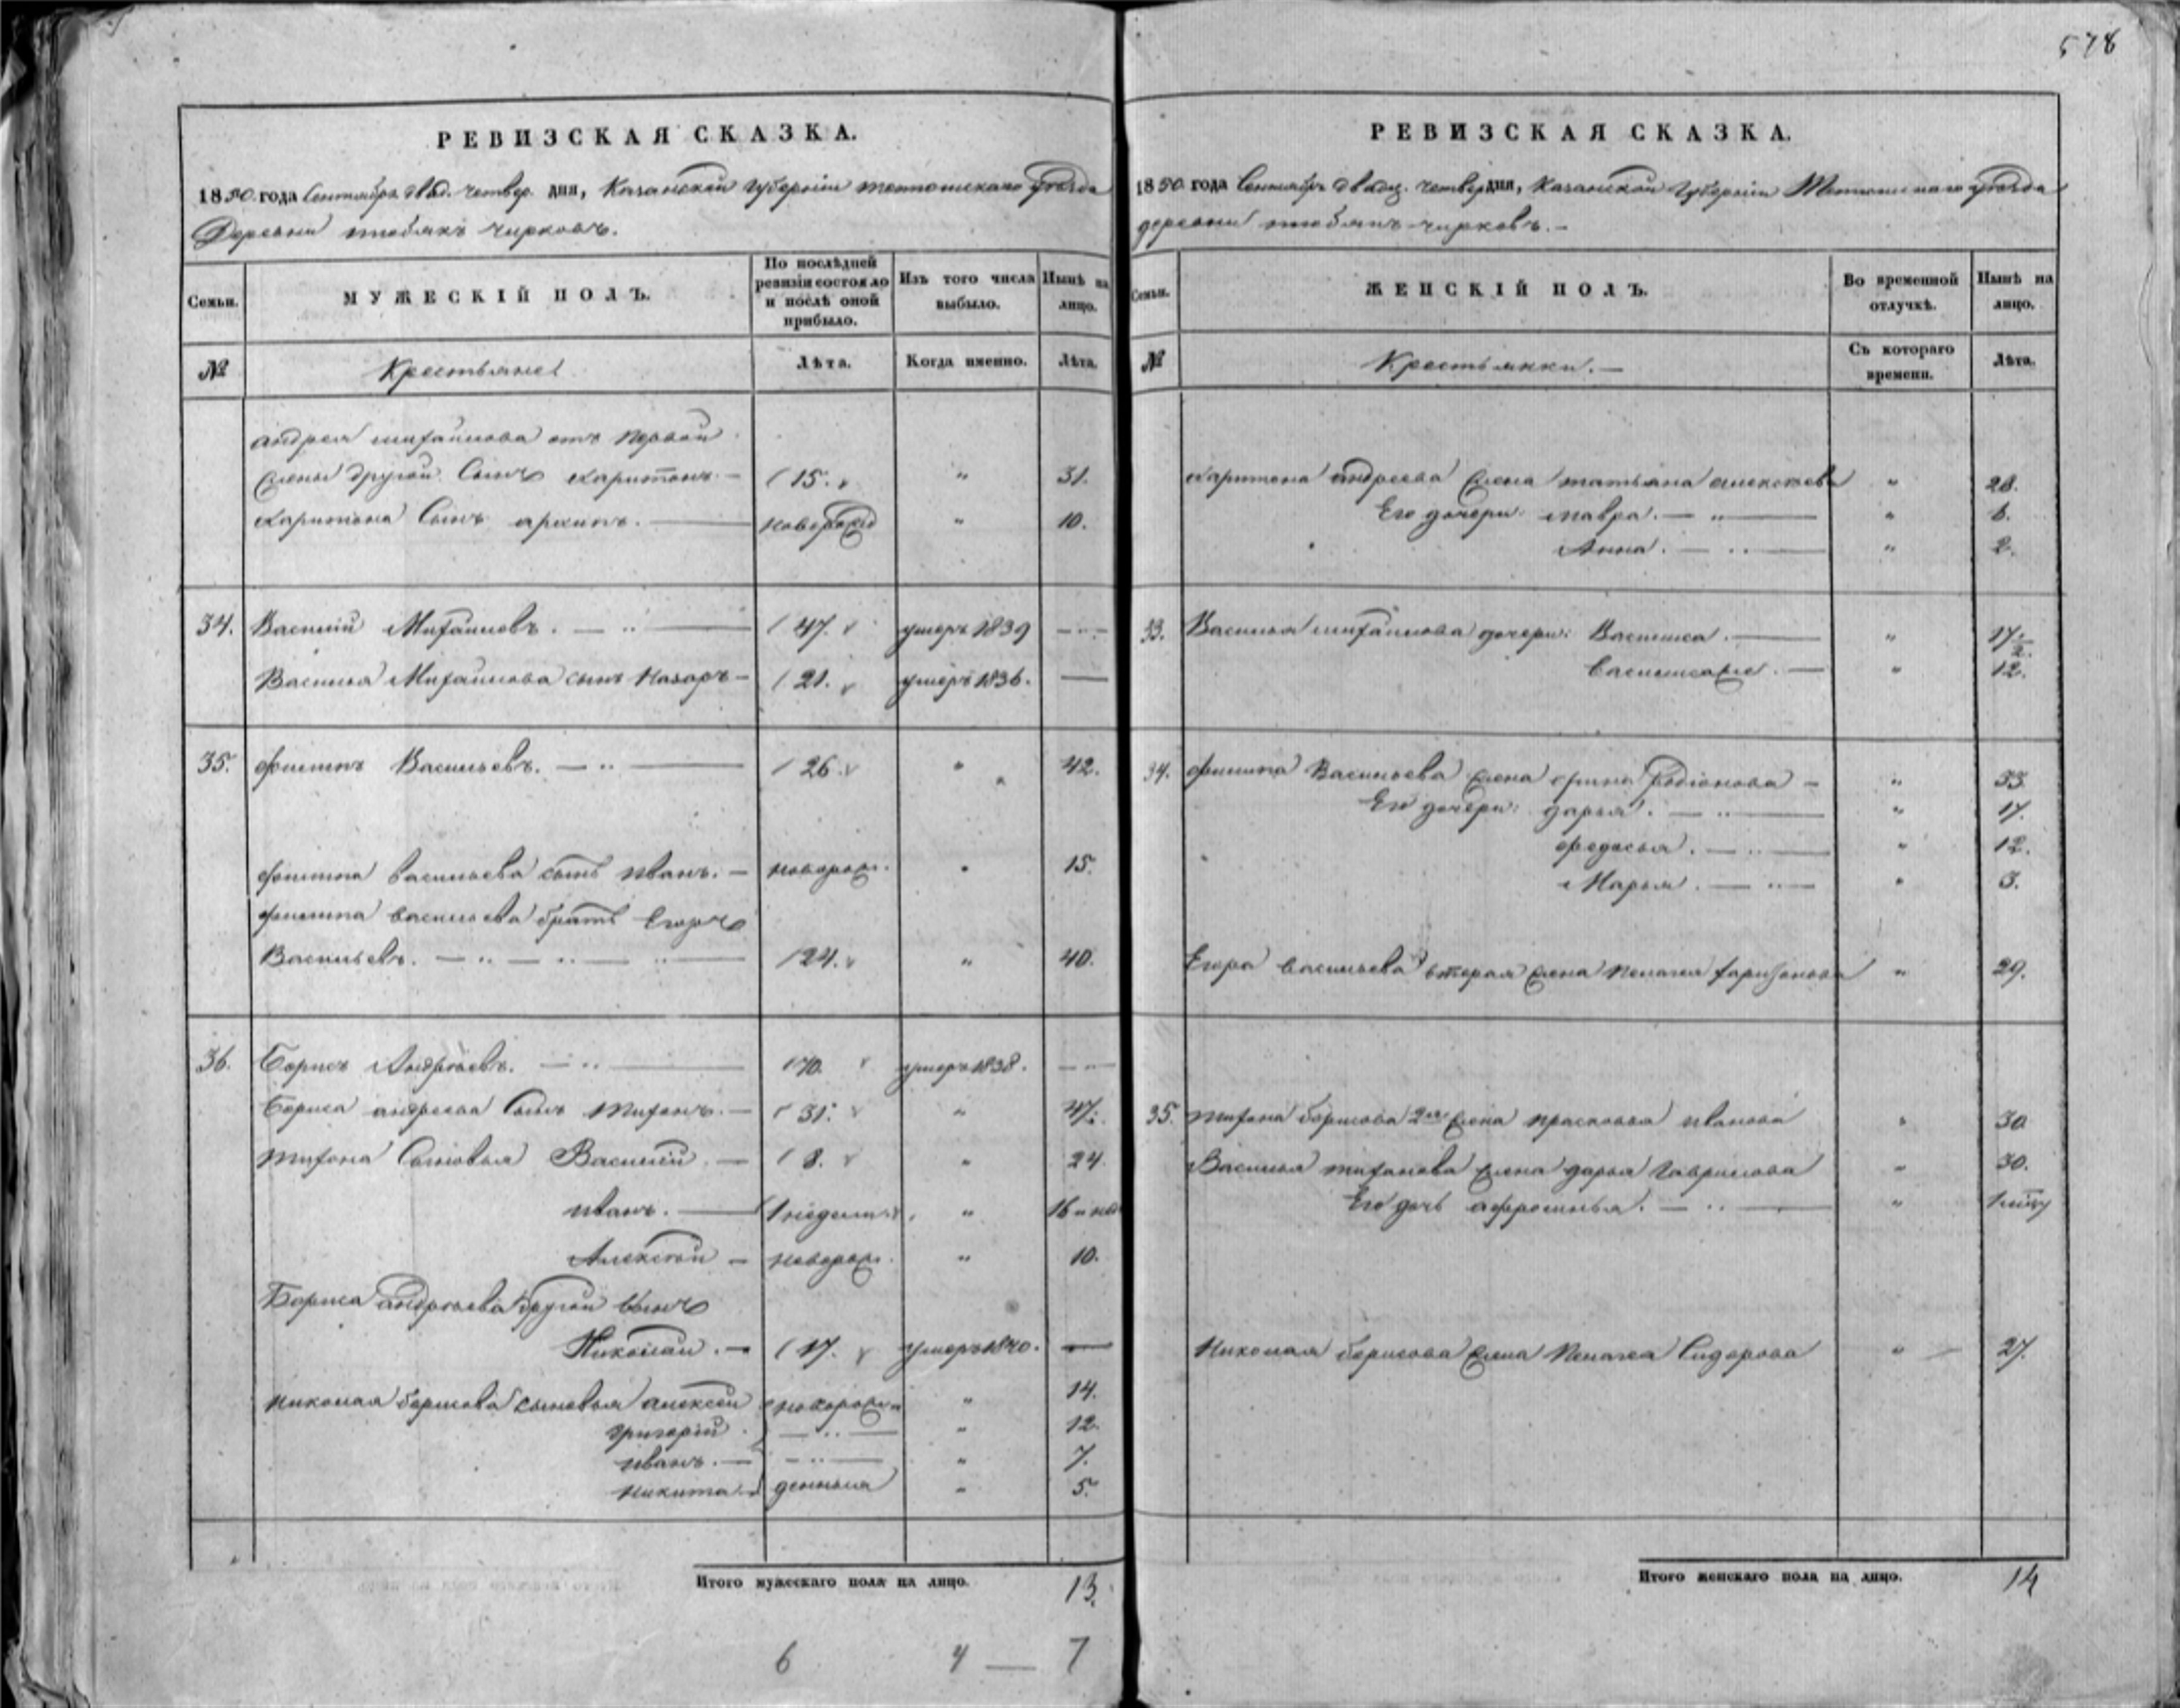 578
РЕВИЗСКАЯ СКАЗКА.
1850 года Сентября двад. четвер. дня, Казанской губернии тетюшскаго уѣзда
Деревни чирковъ.
Семьи. МУЖЕСКІЙ ПОЛЪ. По послѣдней ревизіи состояло и послѣ оной прибыло. Изъ того числа выбыло. Нынѣ на лицо.
№ Крестьяне Лѣта. Когда именно. Лѣта.
андрея михайлова отъ первой
жены другой Сынъ харитонъ. — 15. " 31.
харитона Сынъ архипъ. — новорожд " 10.
34. Василий Михайловъ. — 47. умеръ 1839 —
Василья Михайлова сынъ Назаръ — 21. умеръ 1836. —
35. филипъ Васильевъ. — 26. " 42.
филипа васильева сынъ иванъ. — новорож. " 15.
филипа васильева братъ Егоръ
Васильевъ. — 24. " 40.
36. Борисъ Андрѣевъ. — 70. умеръ 1838. —
Бориса андреева Сынъ тихонъ. — 31. " 47.
тихона Сыновья Василий — 8. " 24.
иванъ. — 1 недели " 16 и
Алексѣй — новорож. " 10.
Бориса андрѣева другой сынъ
Николай. — 17. умеръ 1840. —
николая борисова сыновья алексей новорож " 14.
григорий — " 12.
иванъ. — " 7.
никита денныя " 5.
Итого мужескаго пола на лицо. 13.
6 4 — 7
РЕВИЗСКАЯ СКАЗКА.
1850 года Сентября двадц. четвер дня, Казанской губернии уѣзда
деревни чирковъ. —
Семьи. ЖЕНСКІЙ ПОЛЪ. Во временной отлучкѣ. Нынѣ на лицо.
№ Крестьянки. — Съ котораго времени. Лѣта.
харитона андреева жена татьяна алексеева " 28.
Его дочери: мавра. — " 6.
Анна. — " 2.
33. Василья михайлова дочери: Василиса. — " 17 1/2.
" 12.
34. филипа Васильева жена Родіонова — " 33.
Его дочери: дарья. — " 17.
федосья. — " 12.
Марья. — " 3.
Егора васильева вторая жена пелагея " 29.
35. тихона борисова 2я жена прасковья иванова " 30
Василья тиханова жена дарья гаврилова " 30.
Его дочь афросинья. — "
николая борисова жена пелагея Сидорова " 27.
Итого женскаго пола на лицо. 14